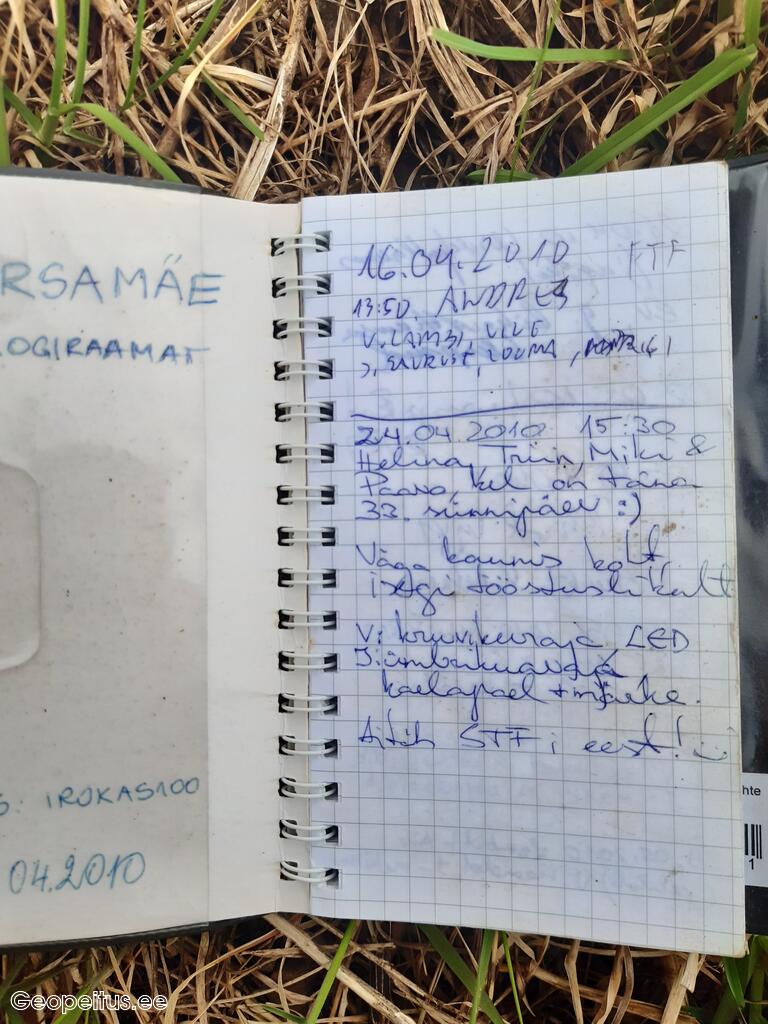 RSAMÄE
OGIRAAMAT
S: IROKAS100
04.2010
16.04.2010 FTF
13:50. ANDRES
V. LAMBI, VILE
J.
24.04.2010 15:30
Helina, Triin, Miki &
Paavo, kel on täna
33. sünnipäev :)
Väga kaunis koht
isegi tööstuslikult
V: kruvikeeraja, LED
J: ümbrikuavaja
kaelapael + märke.
Aitäh STFi eest!
hte
1
Geopeitus.ee